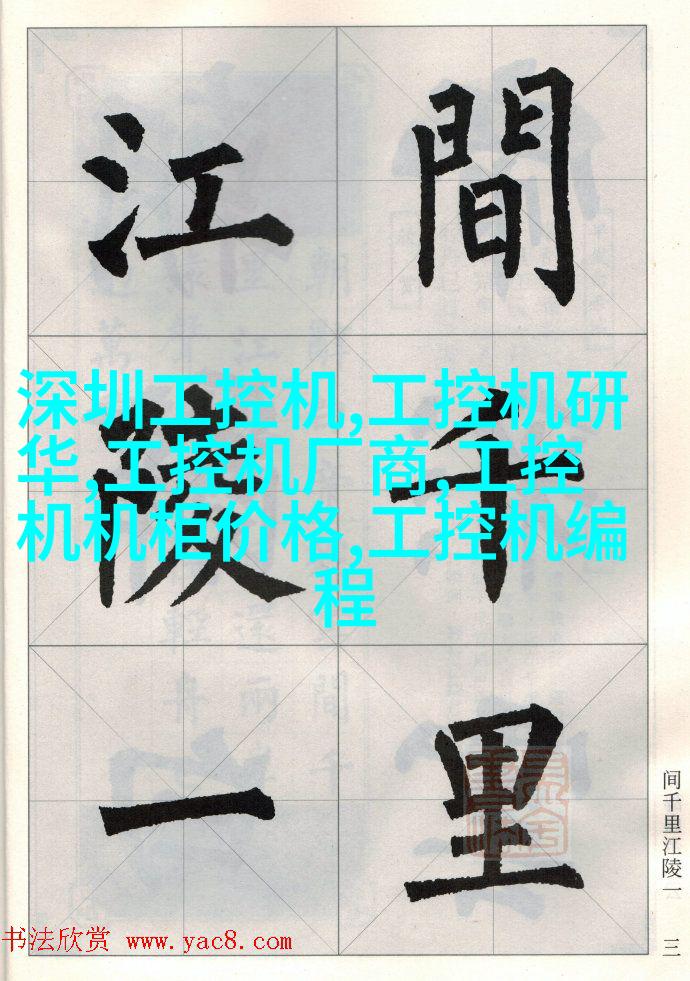 間千里
江陵一
深圳工控机,工控机研
华,工控机厂商,工控
机机柜价格,工控机编
程
间千里江陵一 三
书法欣赏 www.yac8.com